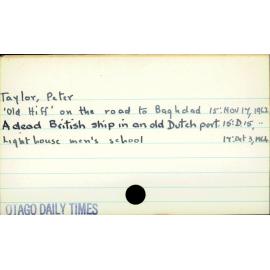 Taylor, Peter
'Old Hiff' on the road to Baghdad 15: Nov 17, 1962
A dead British ship in an old Dutch port 15: D 15, ..
Lighthouse men's school 17: Oct 3, 1964
OTAGO DAILY TIMES